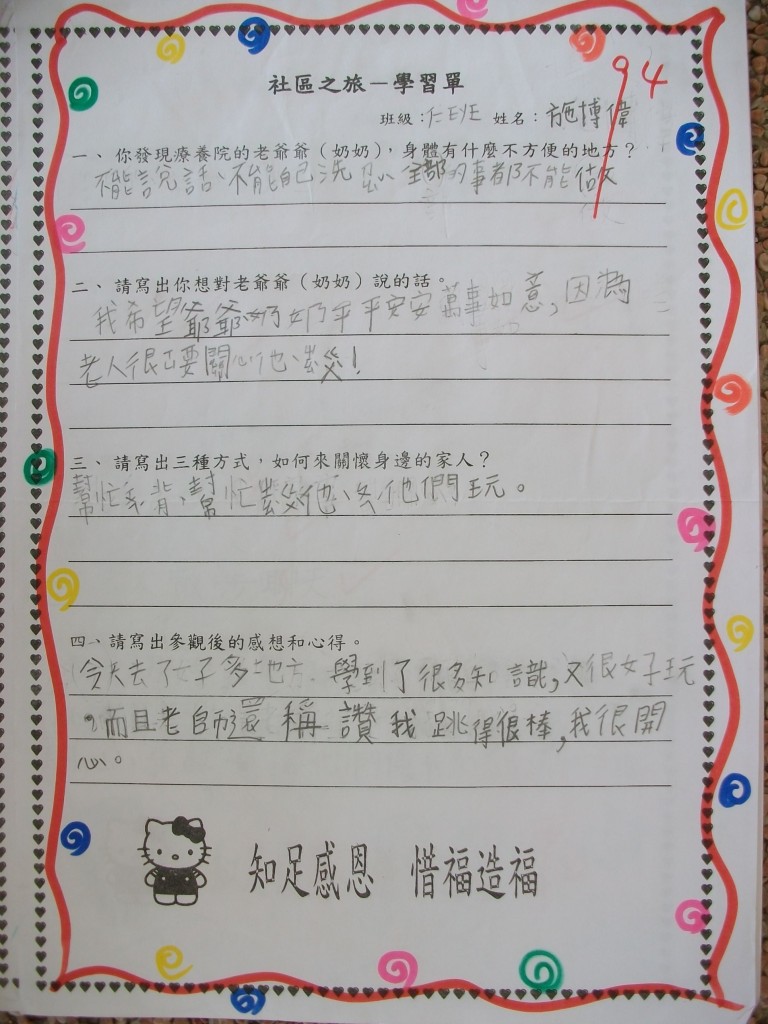 社區之旅－學習單
94
班級： 姓名：施博偉
一、你發現療養院的老爺爺（奶奶），身體有什麼不方便的地方？
不能說話、不能自己洗 全部的事都不能做
二、請寫出你想對老爺爺（奶奶）說的話。
我希望爺爺奶奶平平安安萬事如意，因為
老人很需要關心他、幾！
三、請寫出三種方式，如何來關懷身邊的家人？
幫忙 背、幫忙 他、 他們玩。
四、請寫出參觀後的感想和心得。
今天去了好多地方 學到了很多知識，又很好玩
，而且老師還稱讚我跳得很棒，我很開
心。
知足感恩 惜福造福